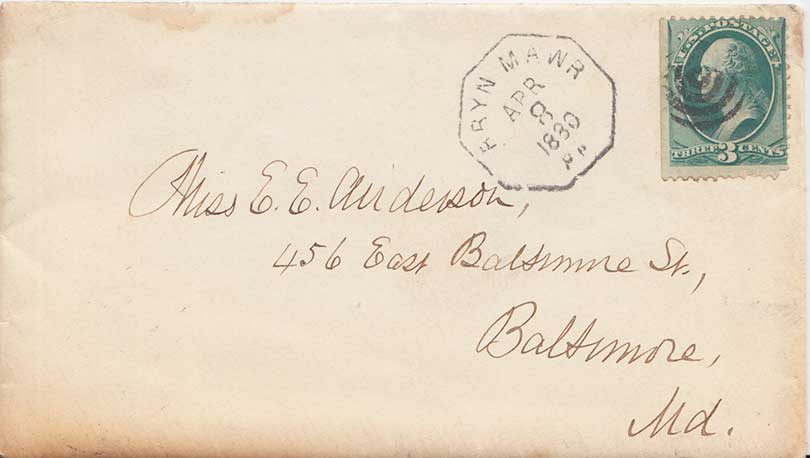 BRYN MAWR
APR
8
1880
PA
U.S. POSTAGE
THREE 3 CENTS
Miss E. E. Anderson,
456 East Baltimore St.,
Baltimore,
Md.